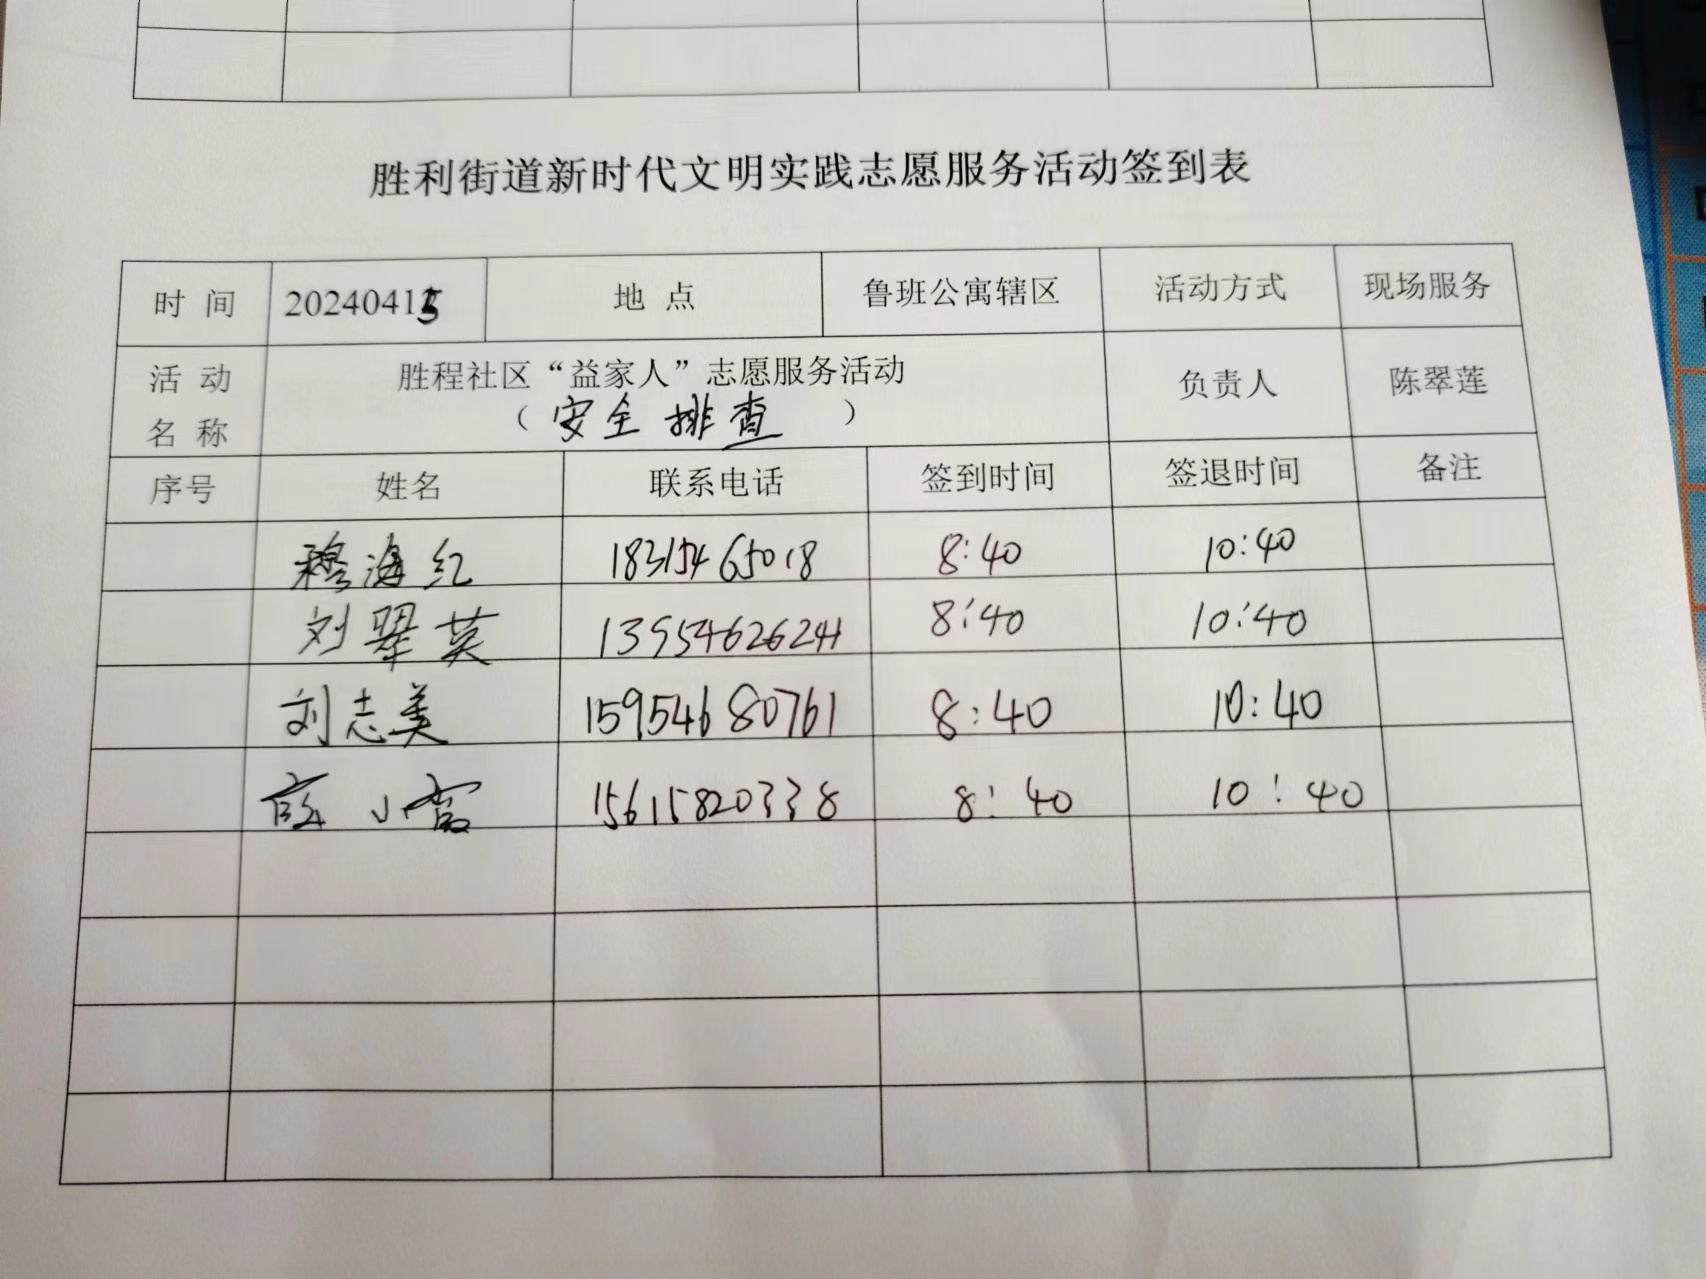 胜利街道新时代文明实践志愿服务活动签到表
时 间 20240415 地 点 鲁班公寓辖区 活动方式 现场服务
活 动 名 称 胜程社区“益家人”志愿服务活动 负责人 陈翠莲
（安全排查）
序号 姓名 联系电话 签到时间 签退时间 备注
穆海红 18315465018 8:40 10:40
刘翠英 13954626241 8:40 10:40
刘志美 15954680761 8:40 10:40
薛小富 15615820338 8:40 10:40